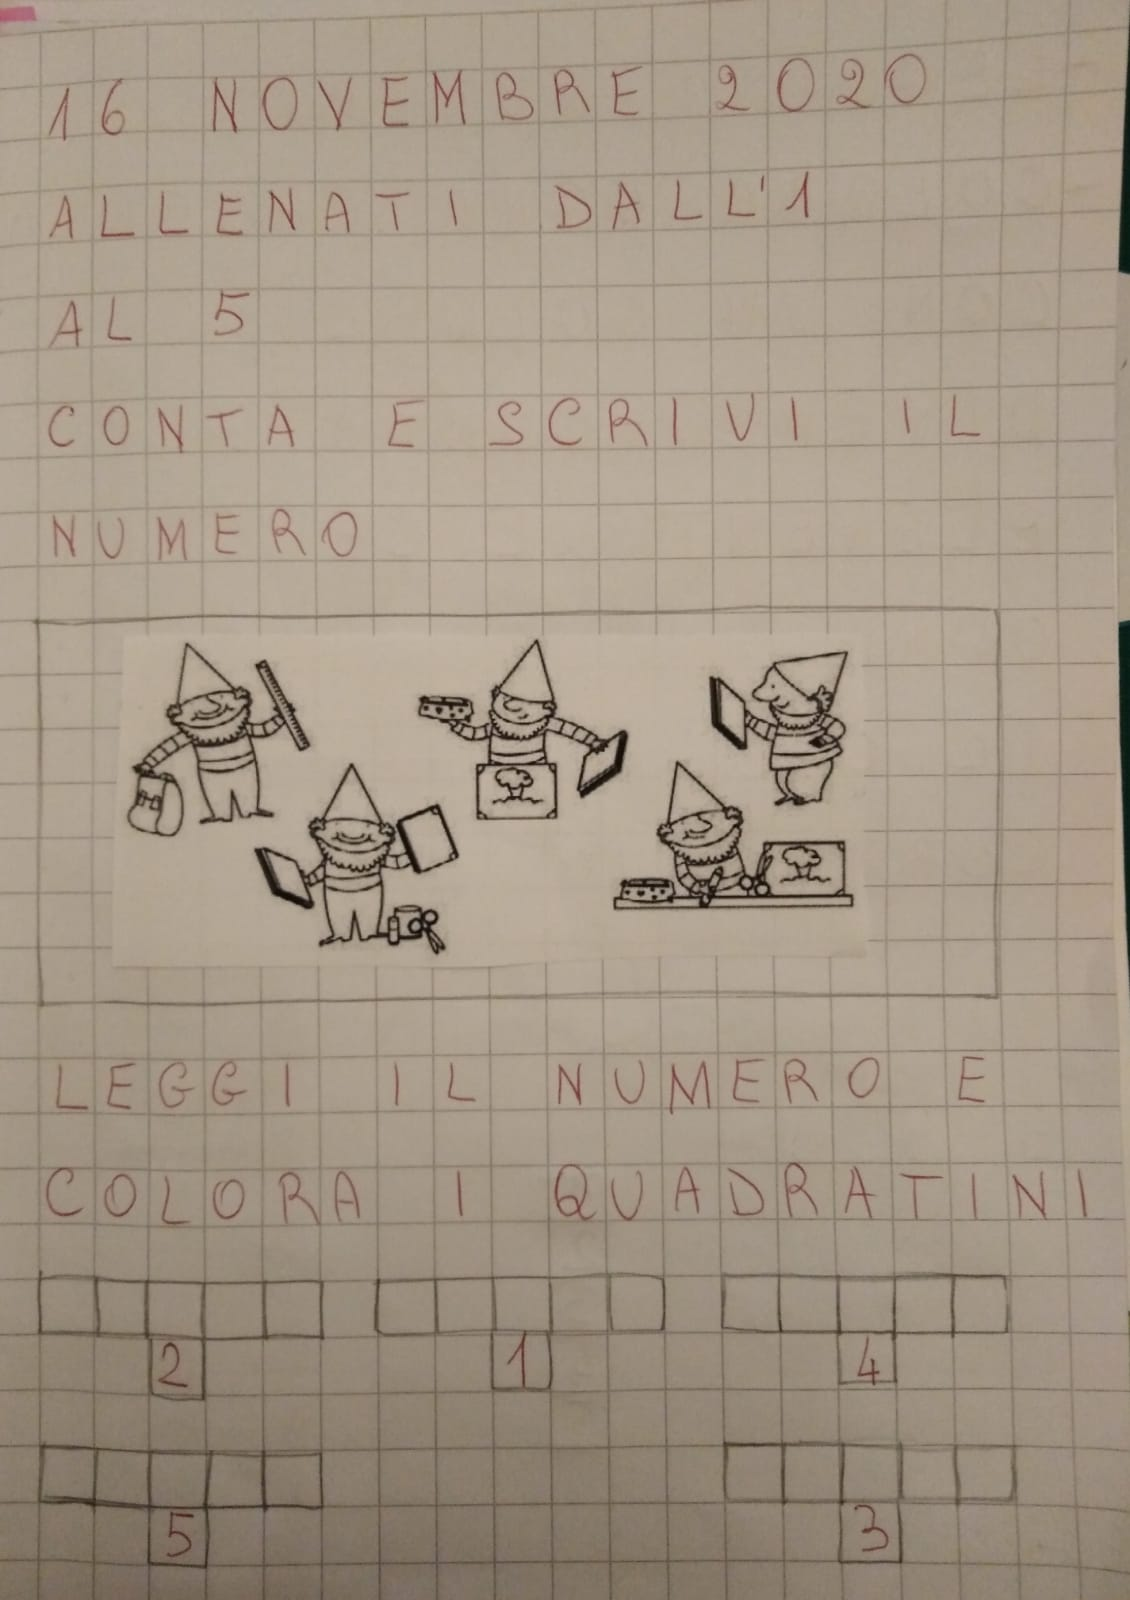 16 NOVEMBRE 2020
ALLENATI DALL'1
AL 5
CONTA E SCRIVI IL
NUMERO
LEGGI IL NUMERO E
COLORA I QUADRATINI
2 1 4
5 3